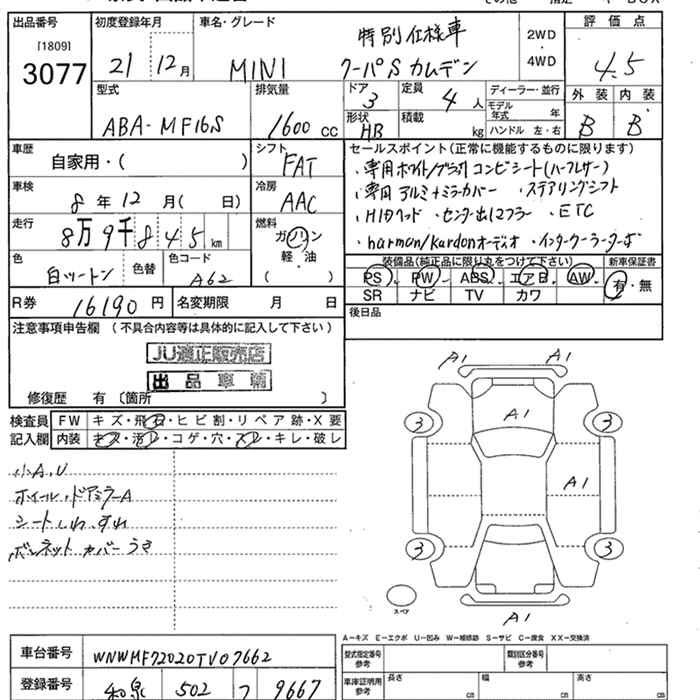 出品番号 初度登録年月 車名・グレード 評価点
[1809]
3077
21 12月 MINI 特別仕様車 クーパS カムデン 2WD・4WD 4.5
型式 排気量 ドア 3 定員 4人 ディーラー・並行 外装 内装
モデル年式 年
ABA-MF16S 1600cc 形状 HB 積載 kg ハンドル 左・右 B B
車歴 自家用・( シフト FAT
セールスポイント(正常に機能するものに限ります)
・専用ホワイト/ブラックコンビシート(ハーフレザー)
・専用アルミ+ミラーカバー ・ステアリングシフト
・HIDヘッド ・センター出し2フラー ・ETC
・harman/kardonオーディオ ・インタークーラーターボ
車検 8年12月( 日) 冷房 AAC
走行 8万9千845km 燃料 ガソリン 軽・油 ( )
色 白ツートン 色替 色コード A62
装備品(純正品に限り丸をつけて下さい) 新車保証書
PS PW ABS エアB AW 有・無
SR ナビ TV カワ
R券 16190円 名変期限 月 日
後日品
注意事項申告欄(不具合内容等は具体的に記入して下さい)
JU適正販売店
出品車輌
修復歴 有〔箇所 〕
検査員記入欄 FW キズ・飛石・ヒビ割・リペア跡・X要
内装 キズ・汚レ・コゲ・穴・スレ・キレ・破レ
小A,U
ホイール・ドアミラーA
シートしわ、すれ
ボンネットカバーうき
A1 A1
3 A1 3
A1
3 3
スペア
A1
A-キズ E-エクボ U-凹み W-補修跡 S-サビ C-腐食 XX-交換済
車台番号 WNWMF72020TV07662
型式指定番号 参考 類別区分番号 参考
登録番号 和泉 502 フ 9667
車庫証明用 参考 長さ cm 幅 cm 高さ cm